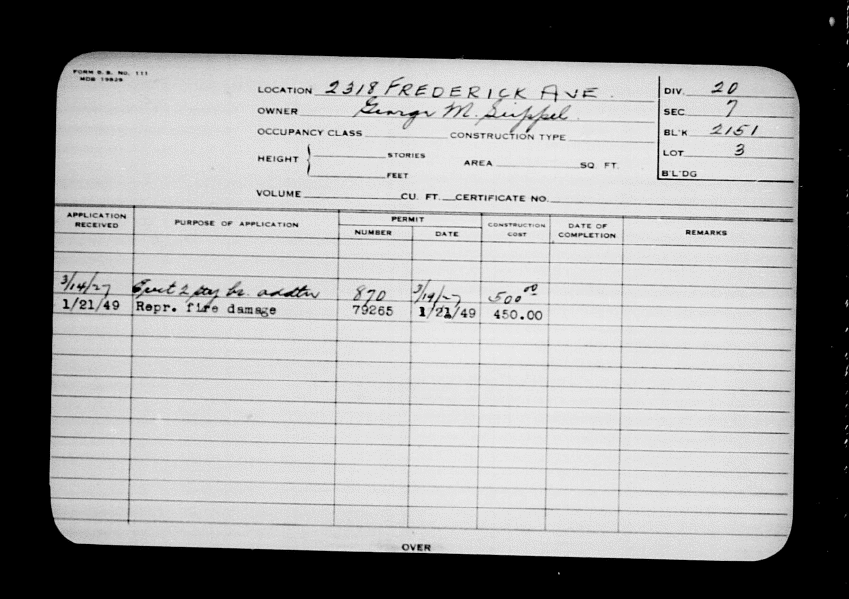 FORM B. B. NO. 111
MDB 19829
LOCATION 2318 FREDERICK AVE.
DIV. 20
OWNER George M. Seippel
SEC. 7
OCCUPANCY CLASS CONSTRUCTION TYPE
BL'K 2151
HEIGHT { STORIES AREA SQ. FT.
FEET
LOT 3
B'L'DG
VOLUME CU. FT. CERTIFICATE NO.
APPLICATION RECEIVED PURPOSE OF APPLICATION PERMIT NUMBER DATE CONSTRUCTION COST DATE OF COMPLETION REMARKS
3/14/27 Erect 2 sty br. addtn 870 3/14/27 500 00
1/21/49 Repr. fire damage 79265 1/21/49 450.00
OVER